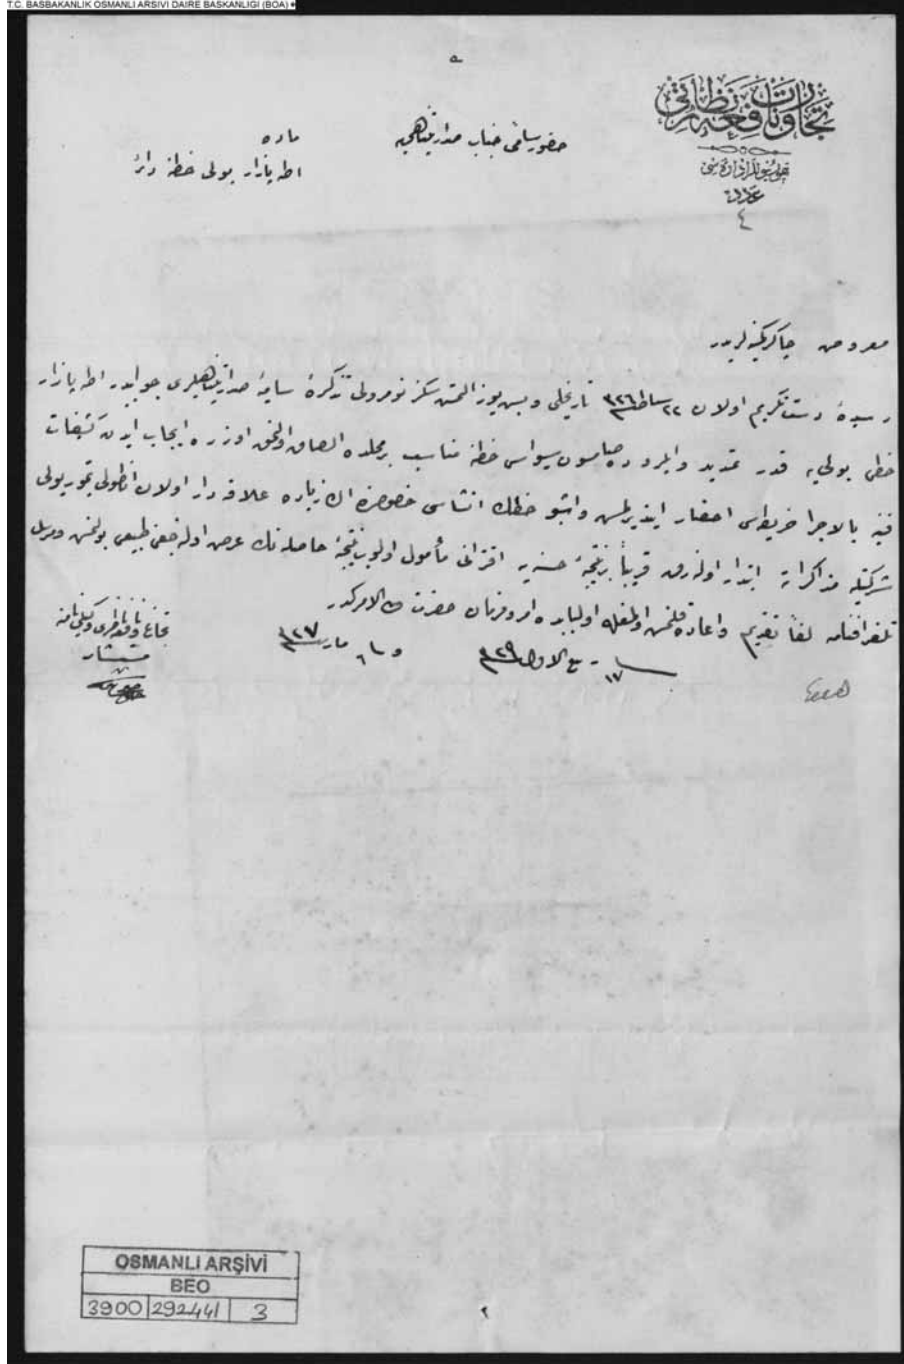 T.C. BAŞBAKANLIK OSMANLI ARŞİVİ DAİRE BAŞKANLIĞI (BOA)
تجارت و نافعه نظارتی
عدد
٤
حضور سامی جناب صدارتپناهی
ماده
اطه پازار بولی خطنه دائر
معروض چاکرکمینه لریدر
رسیدهٔ دست تکریم اولان ٢٢ شباط ٣٢٦ تاریخلی و بش یوز التمش سکز نومرولی تذکرهٔ سامیهٔ صدارتپناهیلری جوابیدر اطه پازار
خطی بولی یه قدر تمدید و ایلروده صامسون سیواس خطنه مناسب بر محلده الصاق اولنمق اوزره ایجاب ایدن کشفیات
فنیه بالاجرا خریطه سی احضار ایتدیرلمش و اشبو خطك انشاسی خصوصنده اك زیاده علاقه دار اولان اناطولی تیمور یولی
شرکتیله مذاکراته ابتدار اوله رق قریباً بر نتیجهٔ حسنه یه اقترانی مأمول اولوب نتیجهٔ حاصله نك عرض اوله جغی طبیعی بولنمش و مرسل
تلغرافنامه لفاً تقدیم و اعاده قلنمش اولمغله اولبابده امر و فرمان حضرت من له الامرکدر
فی ١٧ ربیع الاول ٣٢٩ و فی ٦ مارت ٣٢٧
تجارت و نافعه ناظری وکیلی نامنه
مستشار
OSMANLI ARŞİVİ
BEO
3900 292441 3
٢